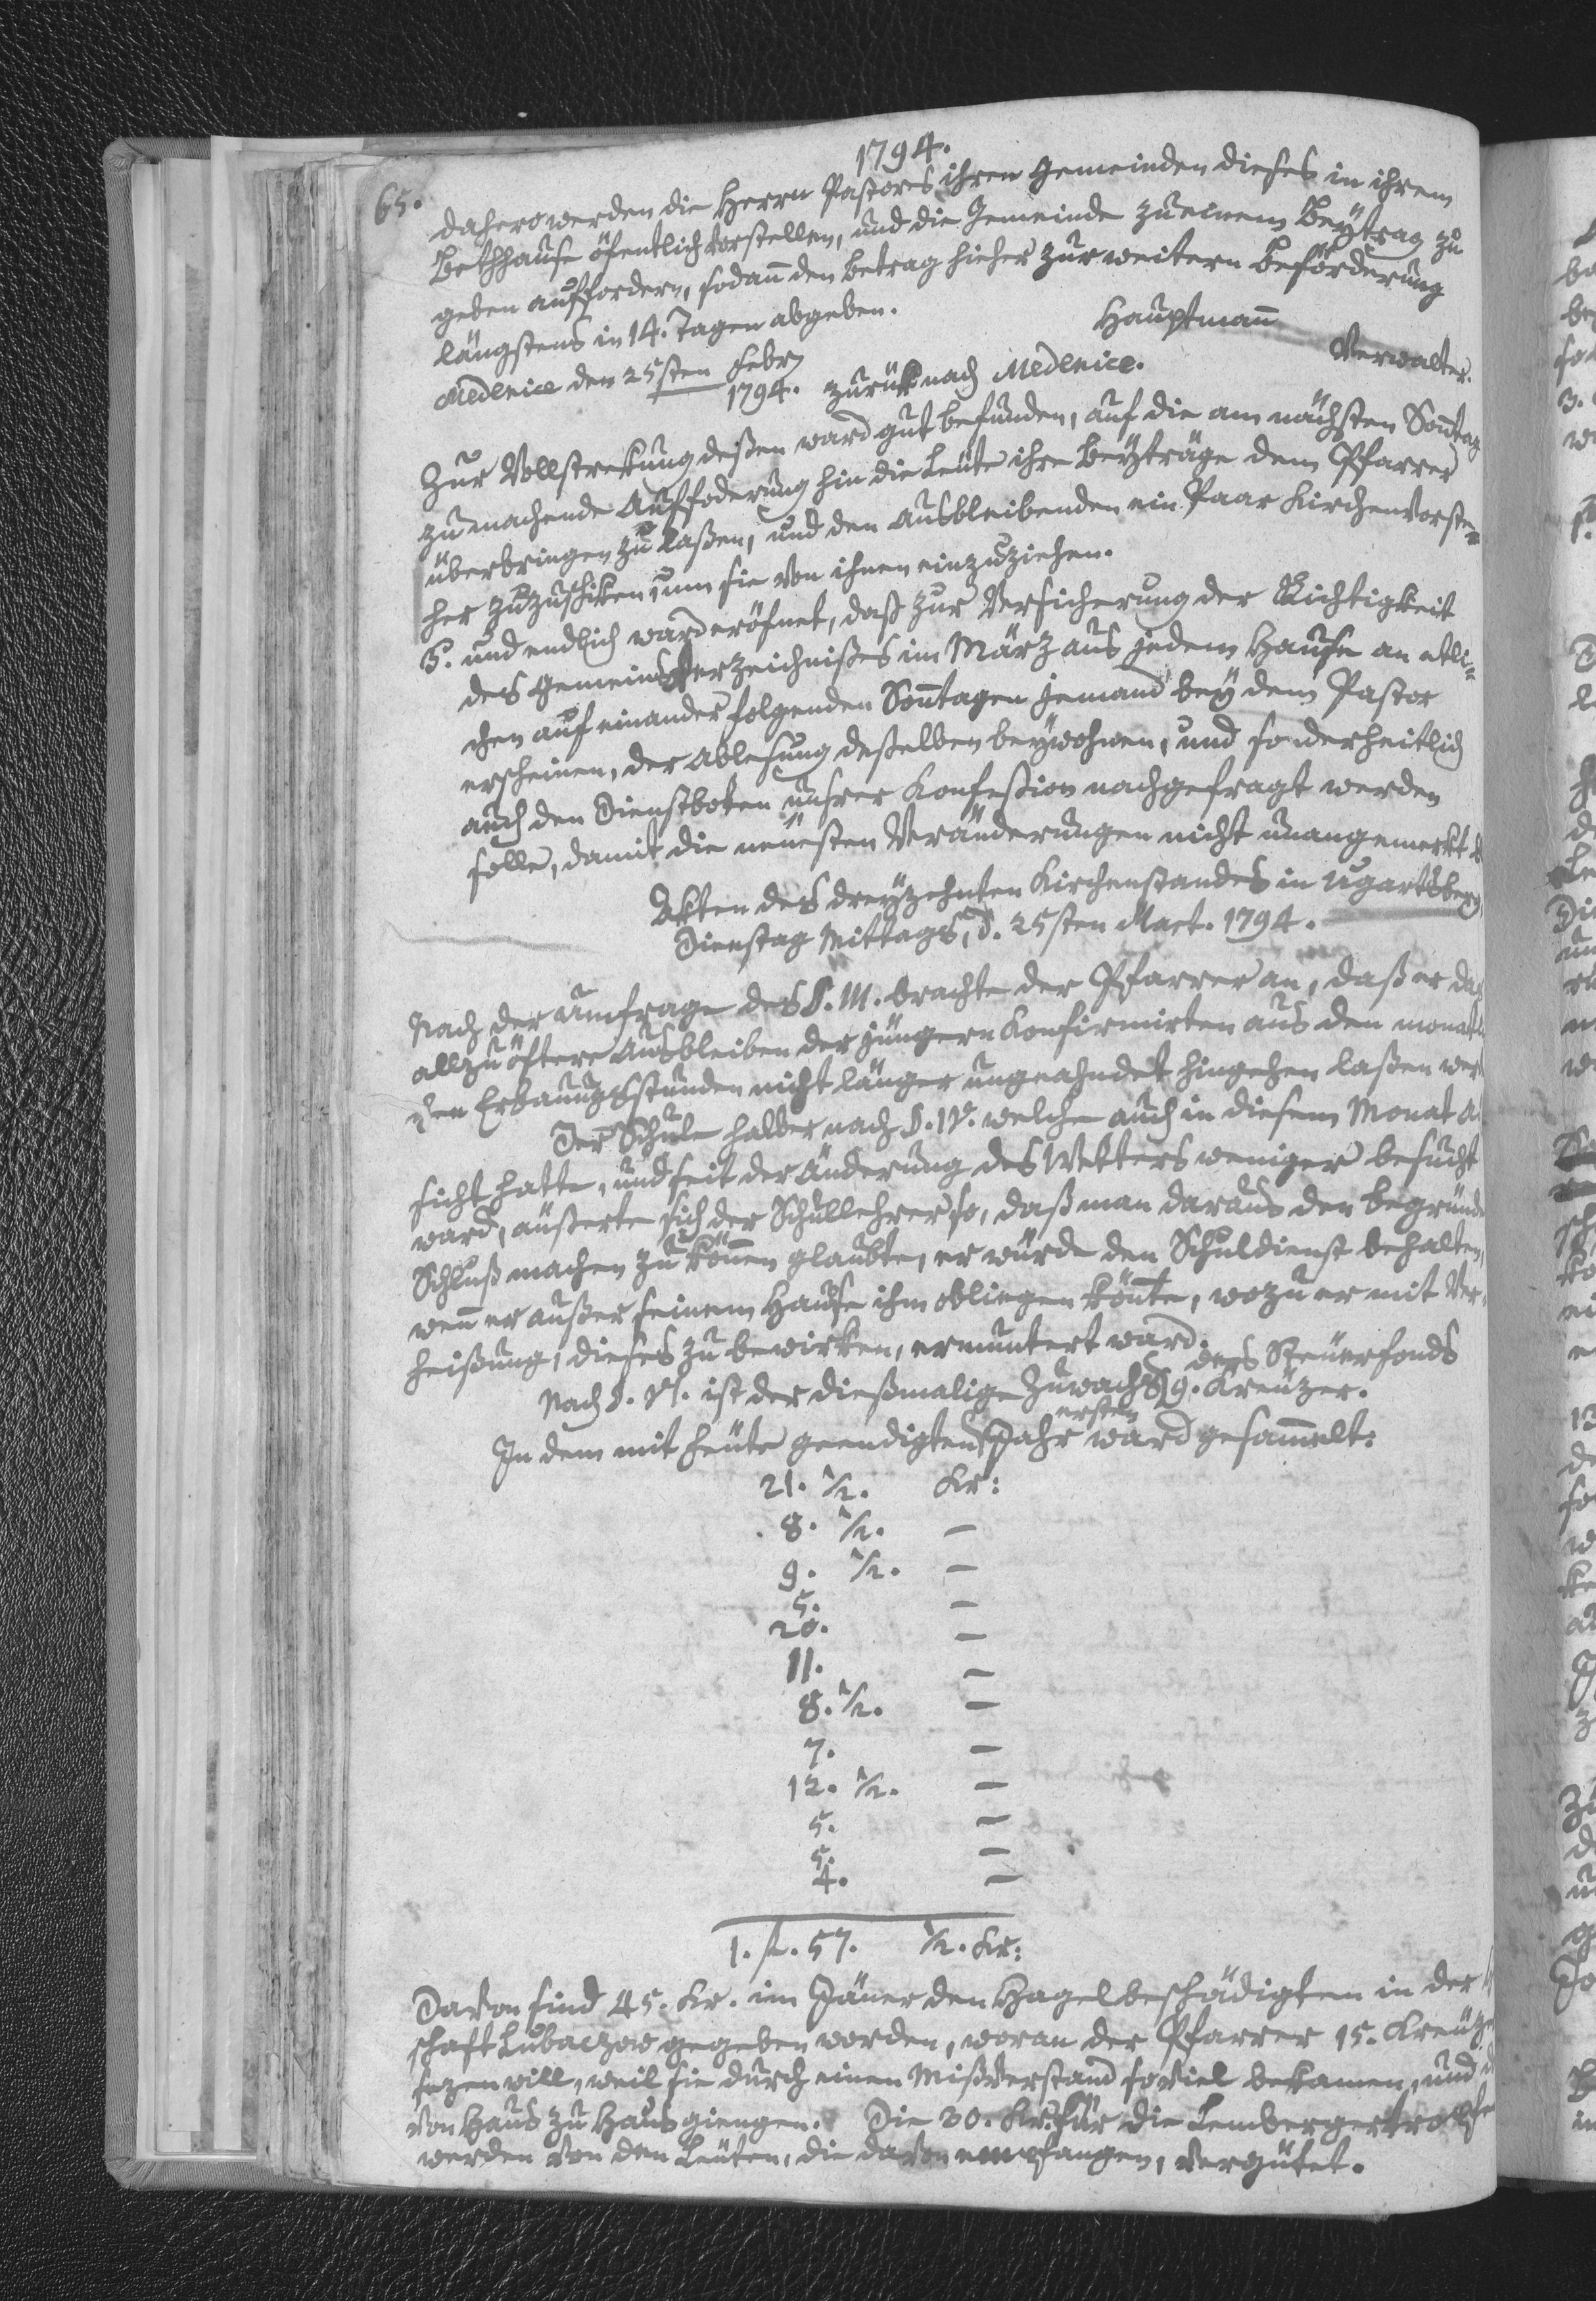 1794.
65.
dahero werden die Herrn Pastores ihren Gemeinden dieses in ihrem
Bethhause öfentlich vorstellen, und die Gemeinde zu einem Beÿtrag zu
geben auffordern, sodan̄ den Betrag hieher zur weitern Beförderung
längstens in 14. Tagen abgeben.
Hauptman̄
Medenice den 25sten Febr 1794. zurük nach Medenice.
Verwalter.
Zur Vollstrekung deßen ward gut befunden, auf die am nächsten Son̄tag
zu machende Auffoderung hin die Leute ihre Beÿträge dem Pfarrer
überbringen zu laßen, und den Ausbleibenden ein Paar Kirchenvorste=
her zuzuschiken, um sie von ihnen einzuziehen.
5. und endlich ward eröfnet, daß zur Versicherung der Richtigkeit
des Gemeinsverzeichnißes im März aus jedem Hause an etli=
chen auf einander folgenden Son̄tagen jemand beÿ dem Pastor
erscheinen, der Ablesung deßelben beÿwohnen, und sonderheitlich
auch den Dienstboten unsrer Konfeßion nachgefragt werden
solle, damit die neuesten Veränderungen nicht unangemerkt
Akten des dreÿzehnten Kirchenstandes in Ugartsberg,
Dienstag Mittags, d. 25sten Mart. 1794.
Nach der Umfrage des §. III. brachte der Pfarrer an, daß er das
allzu öftere Ausbleiben der jüngern Konfirmirten aus den monatl
chen Erbauungsstunden nicht länger ungeahndet hingehen laßen wer
Der Schule halber nach §. IV. welche auch in diesem Monat
sicht hatte, und seit der Änderung des Wetters weniger besucht
ward, äußerte sich der Schullehrer so, daß man daraus den begründ
Schluß machen zu kön̄en glaubte, er würde den Schuldienst behalten,
wen̄ er außer seinem Hause ihm obliegen kön̄te, wozu er mit Ver=
heißung, dieses zu bewirken, ermuntert ward.
Nach §. VI. ist der dießmalige Zuwachs des Steuerfonds 9. Kreuzer.
In dem mit heute geendigten ersten Jahr ward gesam̄elt:
21. ½. Kr:
8. ½. —
9. ½. —
5. —
20. —
11. —
8. ½. —
7. —
12. ½. —
5. —
5. —
4. —
1. fl. 57. ½. Kr:
Davon sind 45. Kr. im Jäner den Hagelbeschädigten in der
schaft Lubaczow gegeben worden, woran der Pfarrer 15. Kreuze
sezen will, weil sie durch einen Mißverstand soviel bekamen, und
von Haus zu Haus giengen. Die 30. Kr. für die
werden von den Leuten, die davon empfangen, vergütet.